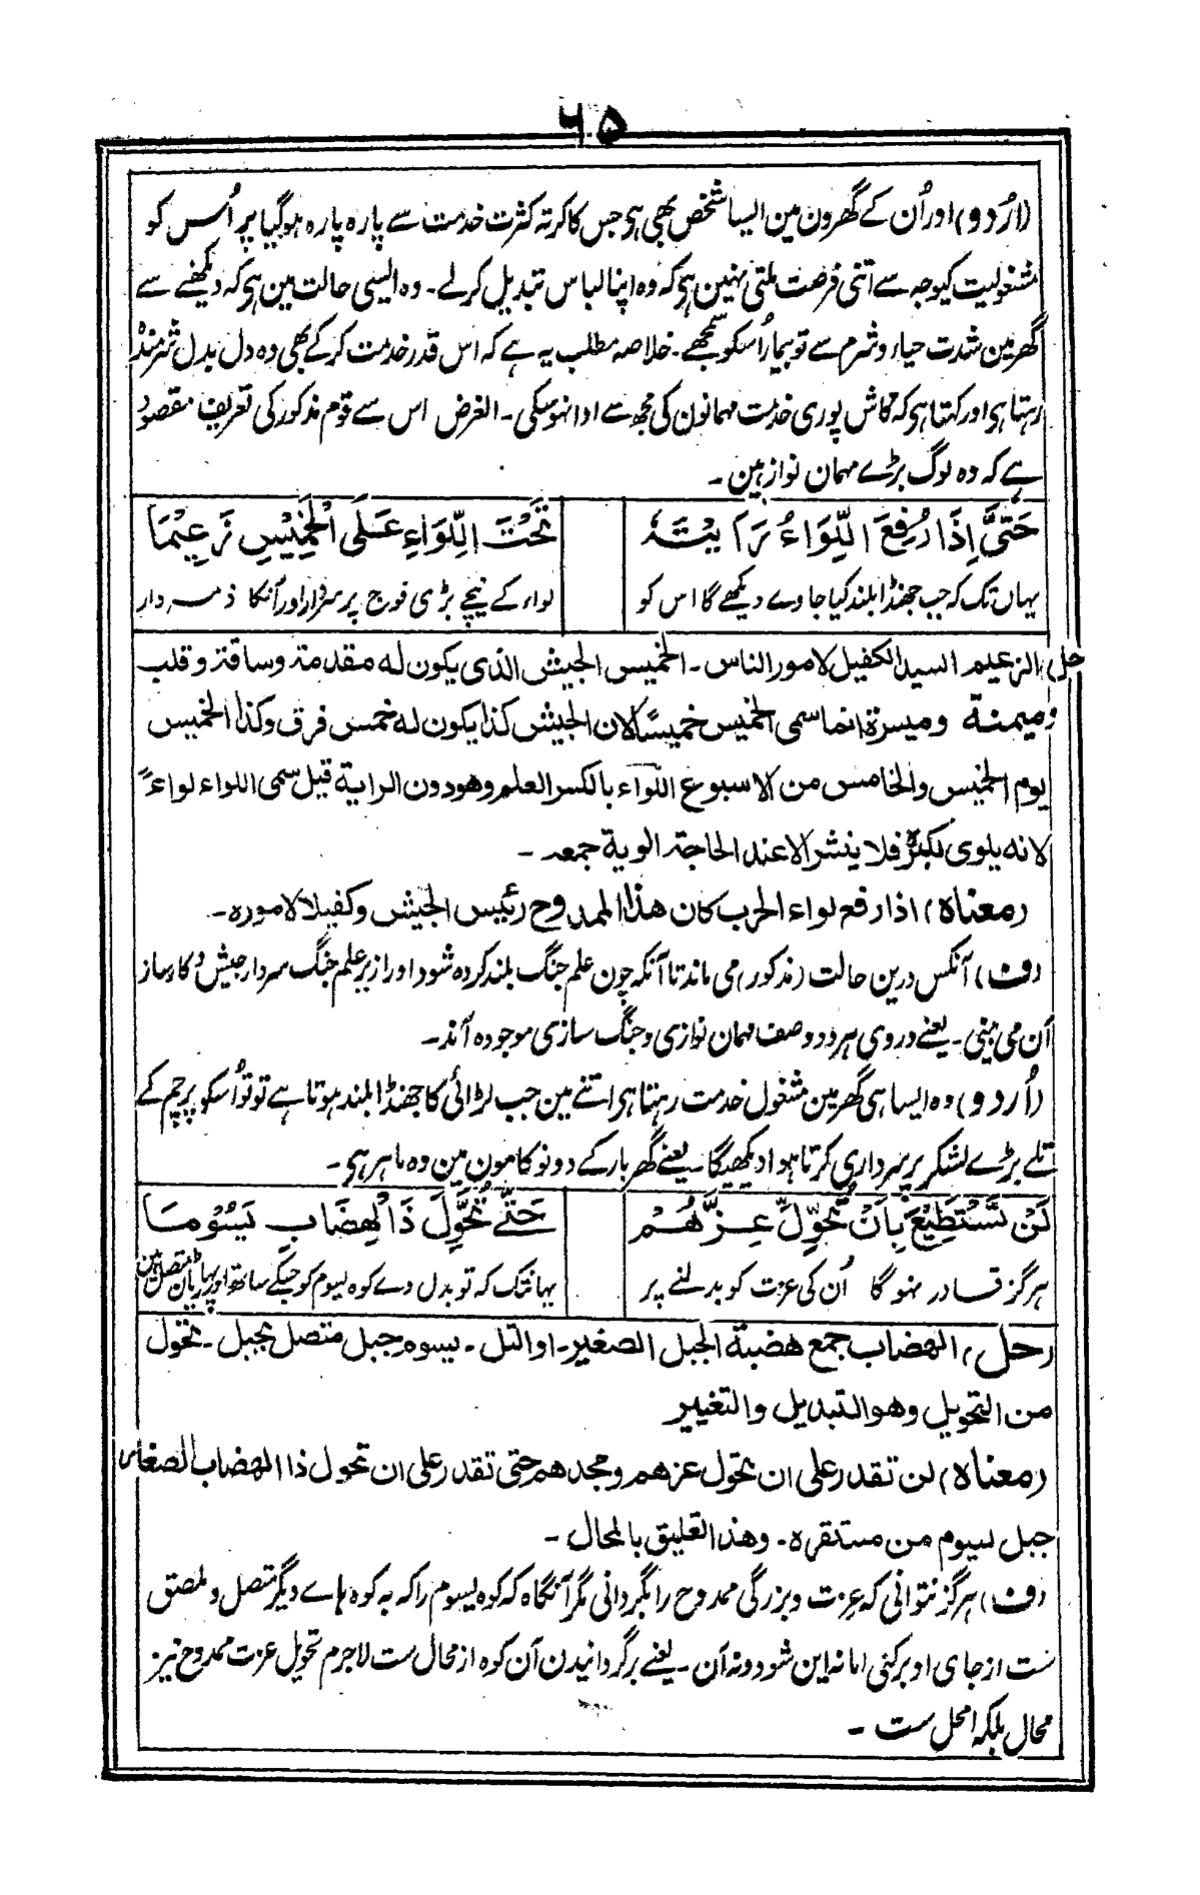 ۶۵
(اُردو) اور اُن کے گھرون مین ایسا شخص بھی ہی جس کا کرتہ کثرت خدمت سے پارہ پارہ ہوگیا پر اُس کو
مشغولیت کیوجہ سے اتنی فرصت ملتی نہین ہی کہ وہ اپنا لباس تبدیل کرلے۔ وہ ایسی حالت مین ہی کہ دیکھنے سے
گھر مین شدت حیاء و شرم سے تو بیمار اُسکو سمجھے۔ خلاصہ مطلب یہ ہے کہ اس قدر خدمت کرکے بھی وہ دل بدل شرمندہ
رہتا ہی اور کہتا ہی کہ کاش پوری خدمت مہمانون کی مجھ سے ادا نہوسکی۔ الغرض اس سے قوم مذکور کی تعریف مقصود
ہے کہ وہ لوگ بڑے مہمان نواز ہین۔
حَتّٰى اِذَا رُفِعَ اللِّوَاءُ رَاَيْتَهٗ
تَحْتَ اللِّوَاءِ عَلَى الْخَمِيْسِ زَعِيْمَا
یہان تک کہ جب جھنڈا بلند کیا جاوے دیکھے گا اس کو
لواء کے نیچے بڑی فوج پر سرفراز اور اُنکا ذمہ دار
(حل) الزعيم السيد الكفيل لامور الناس۔ الخميس الجيش الذى يكون له مقدمة وساقة وقلب
وميمنة وميسرة انما سمى الخميس خميسًا لان الجيش كذا يكون له خمس فرق وكذا الخميس
يوم الخميس والخامس من الاسبوع اللّواء بالكسر العلم وهو دون الراية قيل سمى اللواء لواءً
لانه يلوى لكبره فلا ينشر الا عند الحاجة الوية جمعه۔
(معناه) اذا رفع لواء الحرب كان هذا الممدوح رئيس الجيش وكفيلا لاموره۔
(ف) آنکس درین حالت (مذکور) می ماند تا آنکہ چون علم جنگ بلند کردہ شود او را زیر علم جنگ سردار جیش و کارساز
آن می بینی۔ یعنے در وی ہر دو وصف مہمان نوازی و جنگ سازی موجودہ اند۔
(اُردو) وہ ایسا ہی گھر مین مشغول خدمت رہتا ہی اتنے مین جب لڑائی کا جھنڈا بلند ہوتا ہے تو تو اُسکو پرچم کے
تلے بڑے لشکر پر سرداری کرتا ہوا دیکھیگا۔ یعنے گھر بار کے دونو کامون مین وہ ماہر ہی۔
لَنْ تَسْتَطِيْعَ بِاَنْ تُحَوِّلَ عِزَّهُمْ
حَتّٰے تُحَوِّلَ ذَا الْهِضَابِ يَسُوْمَا
ہرگز قادر نہوگا اُن کی عزت کو بدلنے پر
یہانتک کہ تو بدل دے کوہ یسوم کو جسکے ساتھ اور پہاڑیان متصل ہین
(حل) الهضاب جمع هضبة الجبل الصغير۔ او التل۔ يسوم جبل متصل بجبل۔ تحول
من التحويل وهو التبديل والتغيير
(معناه) لن تقدر على ان تحول عزهم ومجدهم حتى تقدر على ان تحول ذا الهضاب الصغار
جبل يسوم من مستقره۔ وهذا تعليق بالمحال۔
(ف) ہرگز نتوانی کہ عزت و بزرگی ممدوح را بگردانی مگر آنگاہ کہ کوہ یسوم را کہ بہ کوہ ہاے دیگر متصل و ملصق
ست از جای او برکنی اما نہ این شود و نہ آن۔ یعنے برگردانیدن آن کوہ از محال ست لاجرم تحویل عزت ممدوح نیز
محال بلکہ امحل ست۔